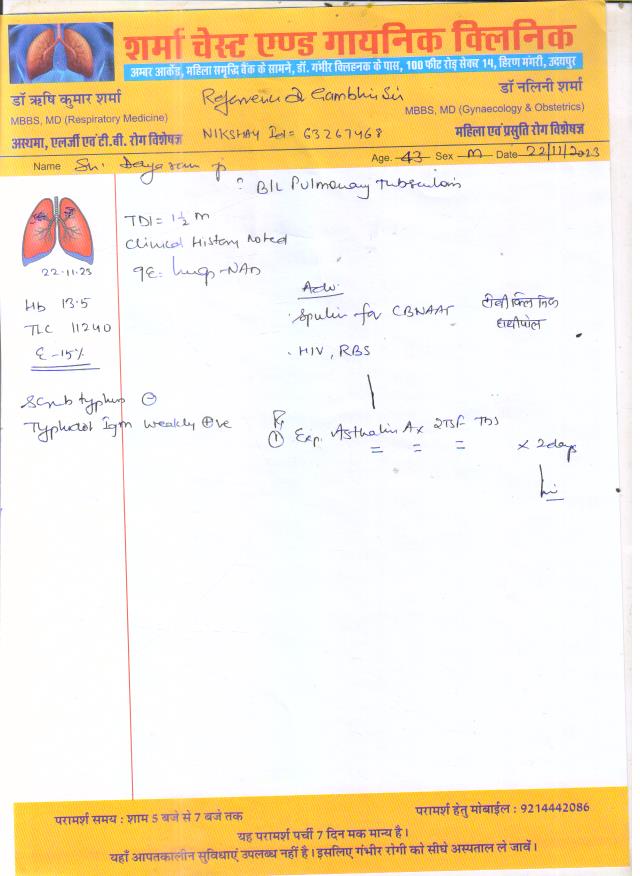 शर्मा चेस्ट एण्ड गायनिक क्लिनिक
अम्बर आर्केड, महिला समृद्धि बैंक के सामने, डॉ. गंभीर क्लिहनक के पास, 100 फीट रोड़ सेक्टर 14, हिरण मंगरी, उदयपुर
डॉ ऋषि कुमार शर्मा
MBBS, MD (Respiratory Medicine)
अस्थमा, एलर्जी एवं टी.बी. रोग विशेषज्ञ
Gambhir Sir
NIKSHAY Id= 63267468
डॉ नलिनी शर्मा
MBBS, MD (Gynaecology & Obstetrics)
महिला एवं प्रसुति रोग विशेषज्ञ
Name Sh. Dayaram ji Age. 43 Sex M Date 22/11/2023
? B/L Pulmonary Tuberculosis
22-11-23
TDI = 1½ m
Clinical History Noted
Lungs-NAD
Hb 13.5
TLC 11240
E-15%
Adv.
Sputum for CBNAAT
टीबी क्लिनिक
हाथीपोल
. HIV, RBS
Scrub typhus ⊖
Typhidot Igm weakly ⊕ve
Rx
① Exp. Asthalin Ax 2TSF TDS x 2days
परामर्श समय : शाम 5 बजे से 7 बजे तक
परामर्श हेतु मोबाईल : 9214442086
यह परामर्श पर्ची 7 दिन मक मान्य है।
यहाँ आपतकालीन सुविधाएं उपलब्ध नहीं है। इसलिए गंभीर रोगी को सीधे अस्पताल ले जावें।